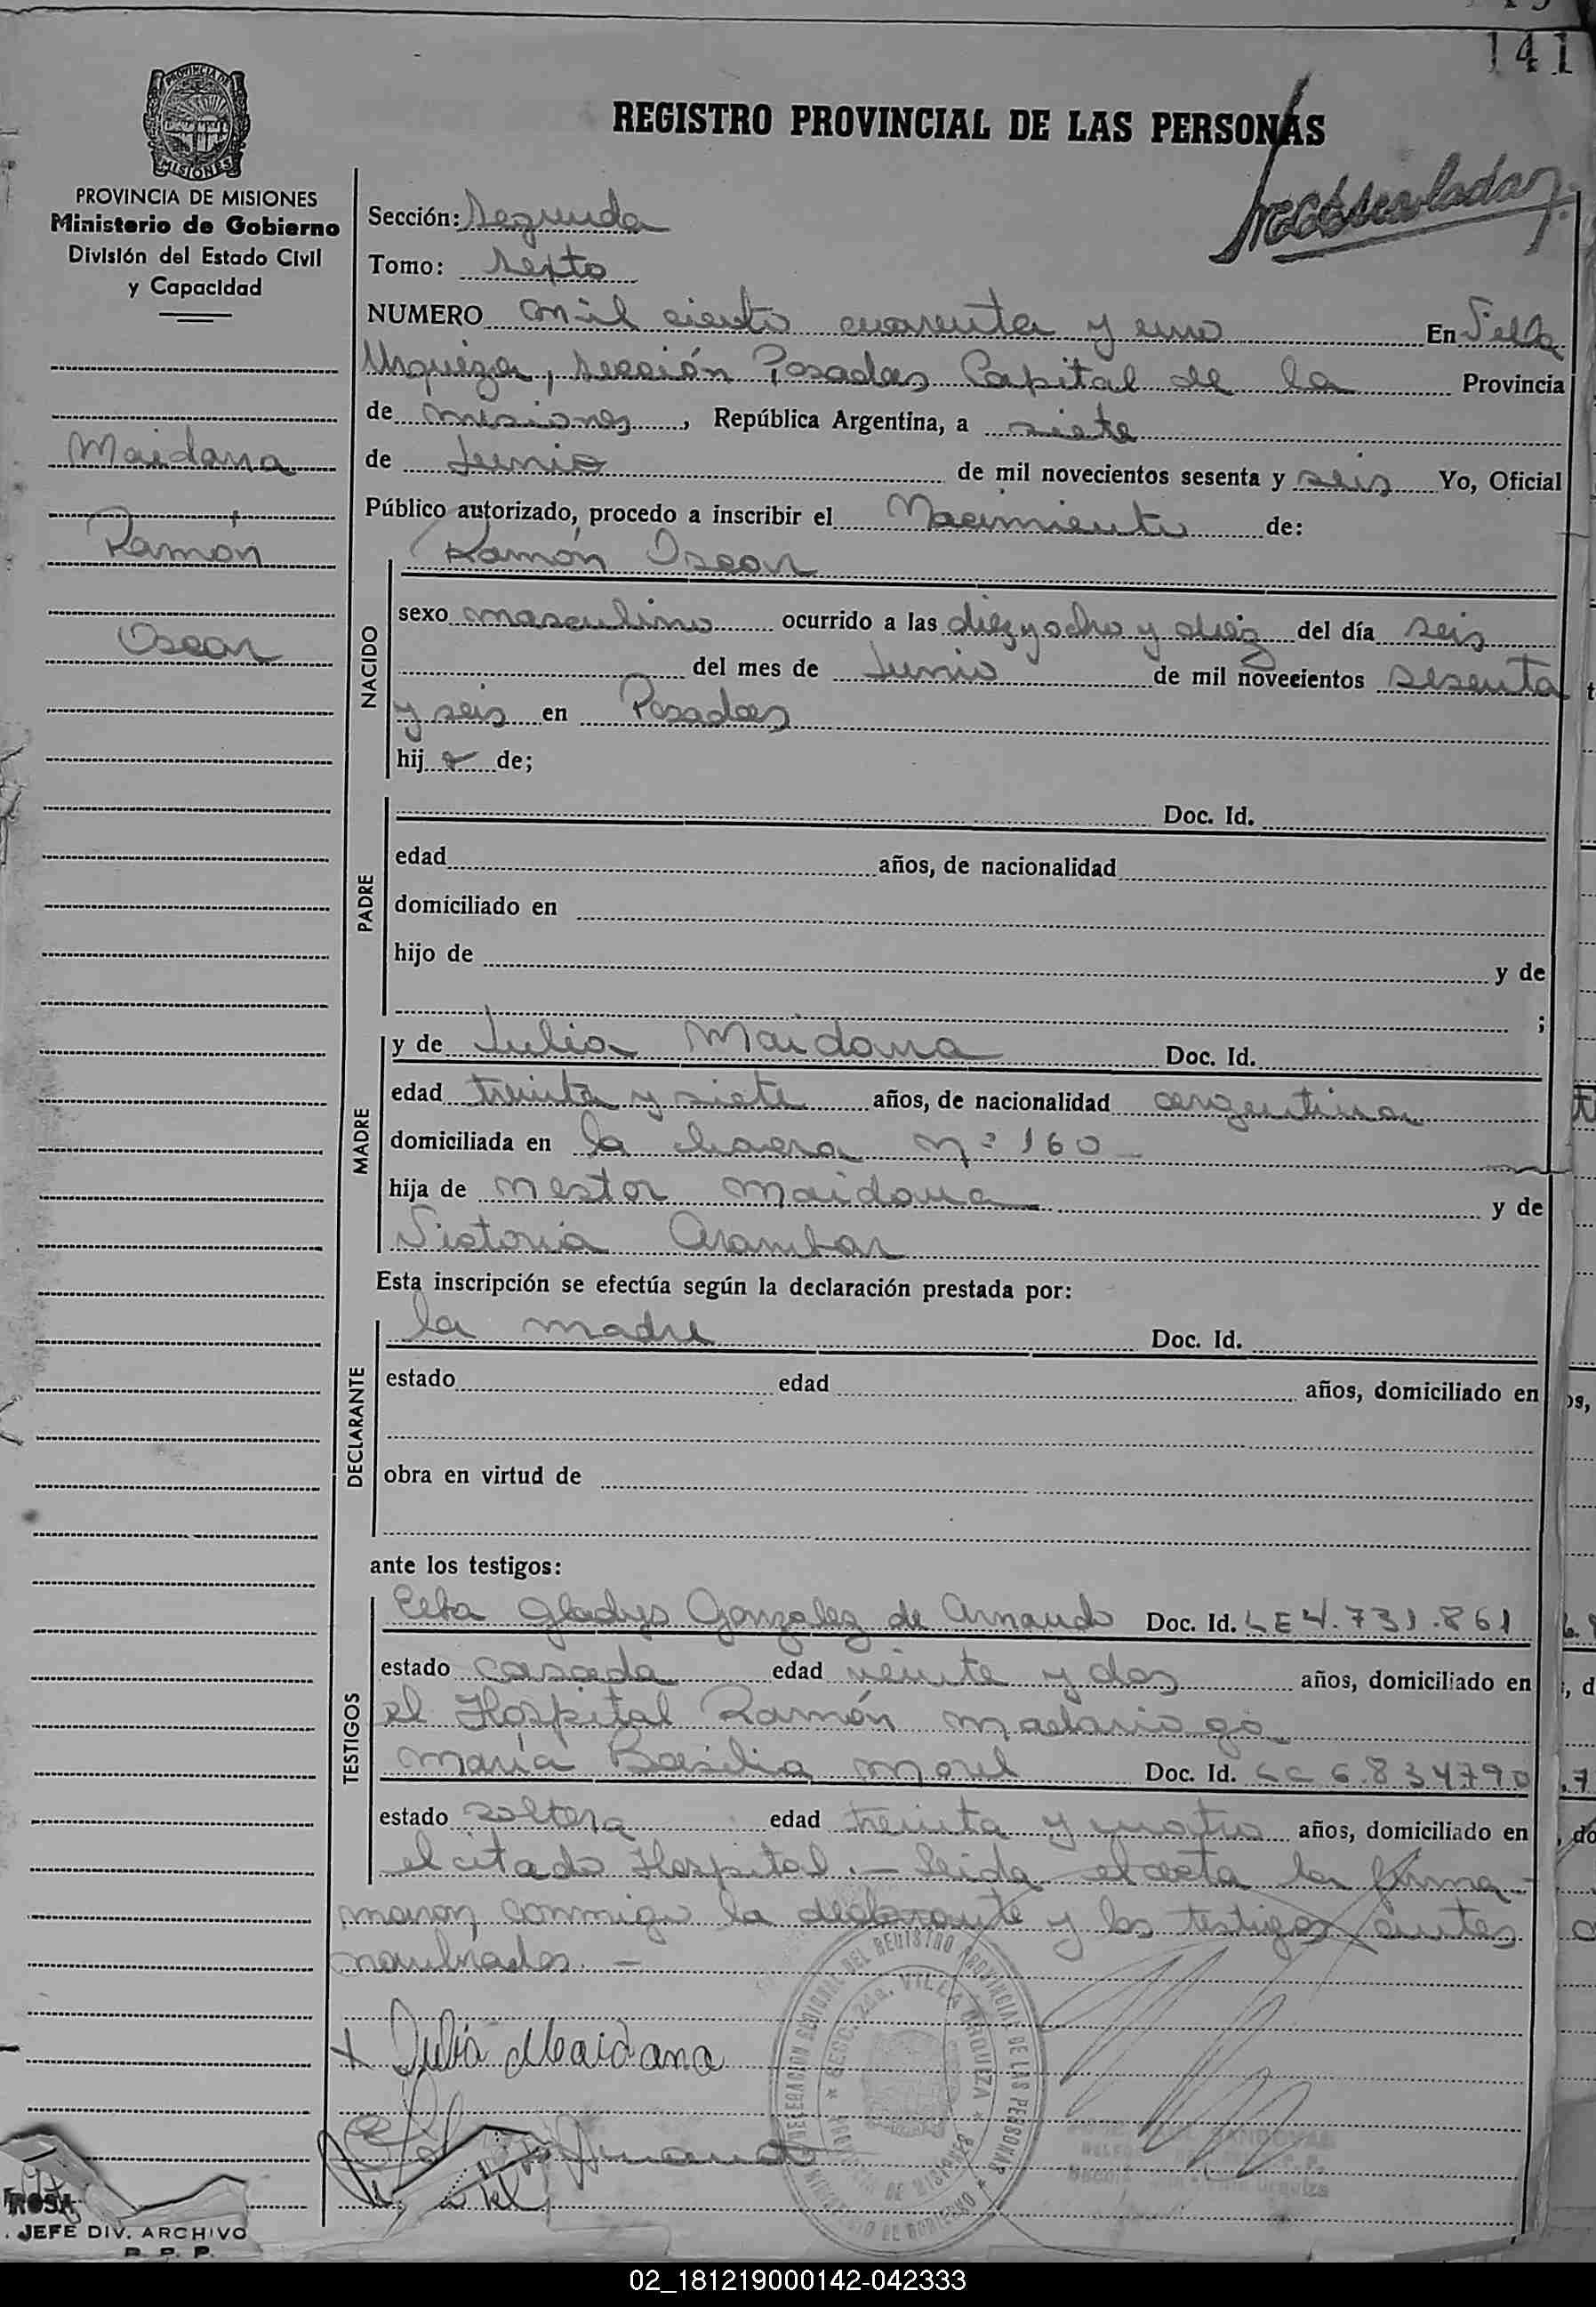 141
PROVINCIA DE
MISIONES
REGISTRO PROVINCIAL DE LAS PERSONAS
PROVINCIA DE MISIONES
Ministerio de Gobierno
División del Estado Civil
y Capacidad
Maidana
Ramón
Oscar
Sección: Segunda
Tomo: Septo
NUMERO mil ciento cuarenta y uno En Villa
Urquiza, sección Posadas Capital de la Provincia
de misiones, República Argentina, a siete
de Junio de mil novecientos sesenta y seis Yo, Oficial
Público autorizado, procedo a inscribir el Nacimiento de:
Ramón Oscar
NACIDO
sexo masculino ocurrido a las diez y ocho y diez del día seis
del mes de Junio de mil novecientos sesenta
y seis en Posadas
hijo de;
PADRE
Doc. Id.
edad años, de nacionalidad
domiciliado en
hijo de y de
;
MADRE
y de Julia Maidana Doc. Id.
edad treinta y siete años, de nacionalidad argentina
domiciliada en la chacra nº 160
hija de nestor maidana y de
Victoria
Esta inscripción se efectúa según la declaración prestada por:
DECLARANTE
la madre Doc. Id.
estado edad años, domiciliado en
obra en virtud de
ante los testigos:
TESTIGOS
Elba Gladys Gonzalez de Arnaudo Doc. Id. LE 4.731.861
estado casada edad veinte y dos años, domiciliado en
el Hospital Ramón madariaga
maría Basilia morel Doc. Id. LC 6.834790
estado soltera edad treinta y cuatro años, domiciliado en
el citado Hospital. — Leida el acta la firma-
maron conmigo la declarante y los testigos antes
nombrados. —
x Julia Maidana
DELEGACION SECCIONAL DEL REGISTRO PROVINCIAL DE LAS PERSONAS
SECC. 2da. VILLA URQUIZA
MINISTERIO DE GOBIERNO
ROSA
JEFE DIV. ARCHIVO
R. P. P.
02_181219000142-042333